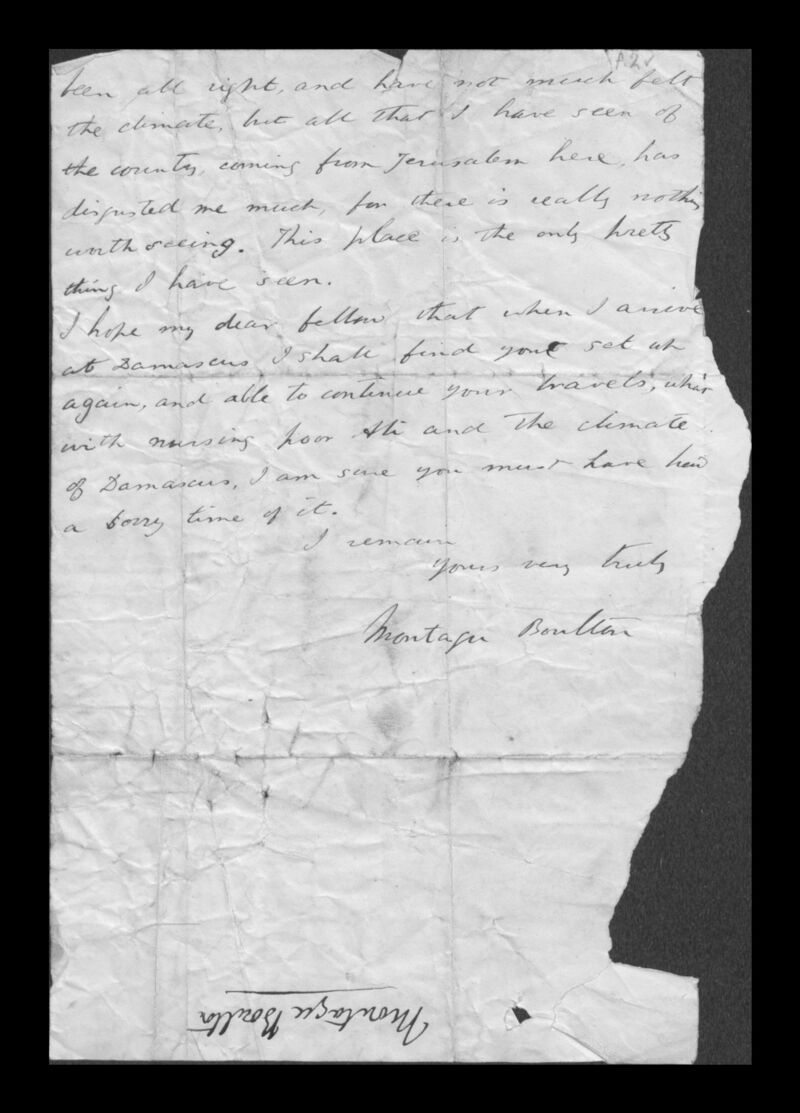 P.2v
been all right, and have not much felt
the climate, but all that I have seen of
the country, coming from Jerusalem here, has
disgusted me much, for there is really nothing
worth seeing. This place is the only pretty
thing I have seen.
I hope my dear fellow that when I arrive
at Damascus I shall find you set up
again, and able to continue your travels,
with nursing poor Ali and the climate
of Damascus, I am sure you must have had
a sorry time of it.
I remain
yours very truly
Montagu Boulton
Montagu Boulton